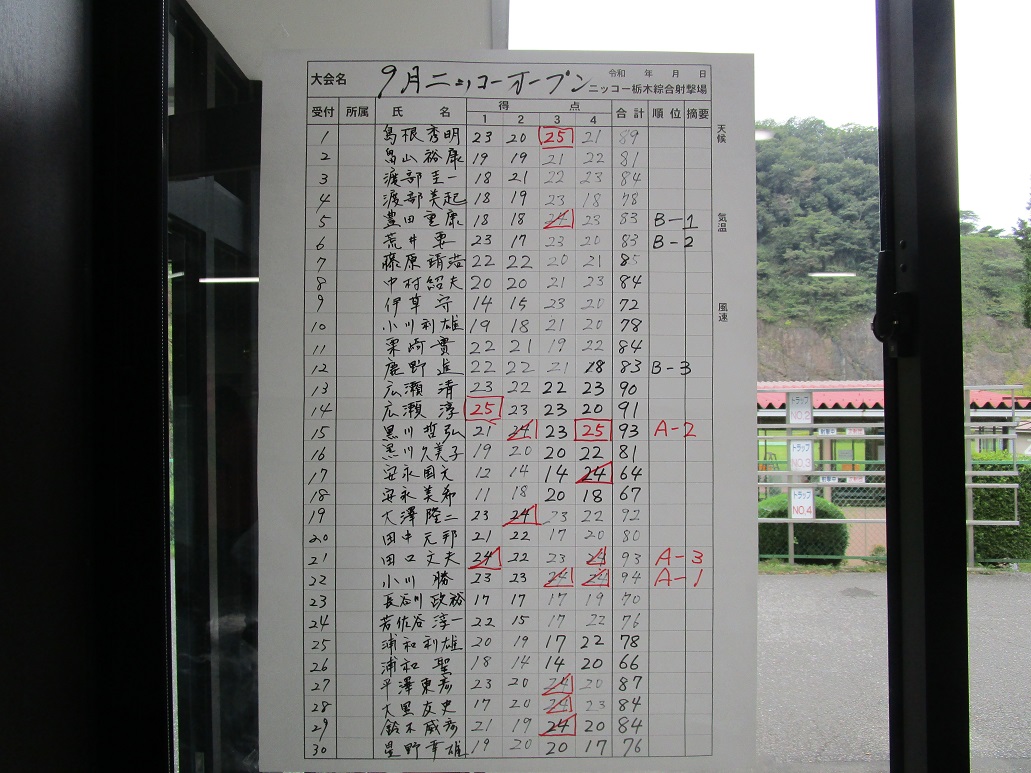 大会名 9月ニッコーオープン 令和 年 月 日
ニッコー栃木綜合射撃場
受付 所属 氏 名 得 点 合計 順位 摘要
1 2 3 4
1 島根秀明 23 20 25 21 89
2 畠山裕康 19 19 21 22 81
3 渡部圭一 18 21 22 23 84
4 渡部美起 18 19 23 18 78
5 豊田重康 18 18 24 23 83 B-1
6 荒井要 23 17 23 20 83 B-2
7 藤原靖浩 22 22 20 21 85
8 中村紹夫 20 20 21 23 84
9 伊草守 14 15 23 20 72
10 小川利雄 19 18 21 20 78
11 栗崎實 22 21 19 22 84
12 鹿野進 22 22 21 18 83 B-3
13 広瀬清 23 22 22 23 90
14 広瀬淳 25 23 23 20 91
15 黒川哲弘 21 24 23 25 93 A-2
16 黒川久美子 19 20 20 22 81
17 安永国文 12 14 14 24 64
18 安永美希 11 18 20 18 67
19 大澤隆二 23 24 23 22 92
20 田中元邦 21 22 17 20 80
21 田口文夫 24 22 23 24 93 A-3
22 小川勝 23 23 24 24 94 A-1
23 長谷川政裕 17 17 17 19 70
24 若佐谷淳一 22 15 17 22 76
25 浦和利雄 20 19 17 22 78
26 浦和聖 18 14 14 20 66
27 平澤東彦 23 20 24 20 87
28 大里友史 17 20 24 23 84
29 鈴木威彦 21 19 24 20 84
30 星野幸雄 19 20 20 17 76
天候
気温
風速
トラップ
NO.2
トラップ
NO.3
トラップ
NO.4